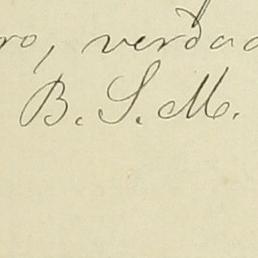 ro, verdad
B. S. M.